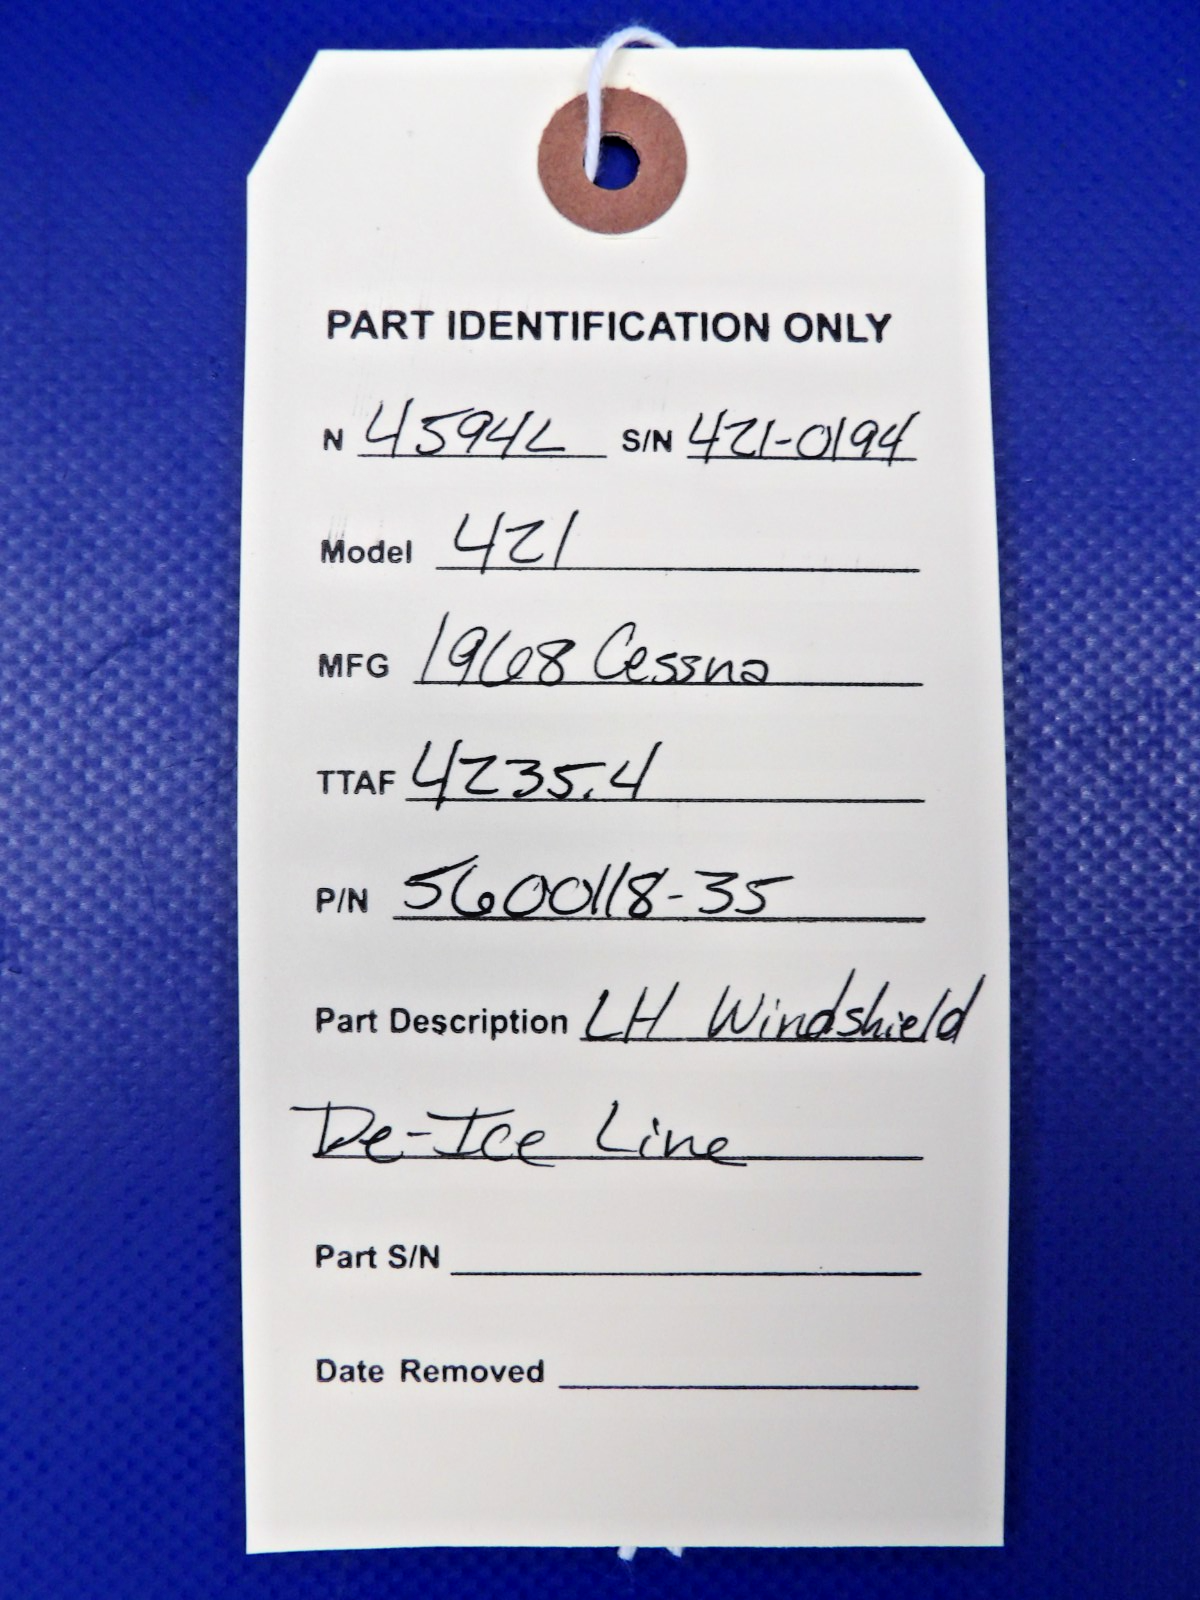 PART IDENTIFICATION ONLY
N 4594L S/N 421-0194
Model 421
MFG 1968 Cessna
TTAF 4235.4
P/N 5600118-35
Part Description LH Windshield
De-Ice Line
Part S/N
Date Removed